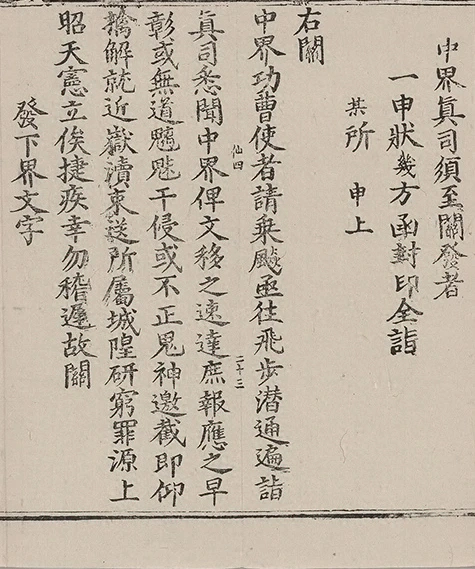 中界真司須至關發者
一申狀幾方函封印全詣
某所　申上
右關
中界功曹使者請乗飈亟徃飛步潜通遍詣
真司悉聞中界俾文移之速達庶報應之早
仙四
二十三
彰或無道魍魎干侵或不正鬼神邀截即仰
擒解就近嶽瀆束送所屬城隍研窮罪源上
昭天憲立俟捷疾幸勿稽遲故關
發下界文字